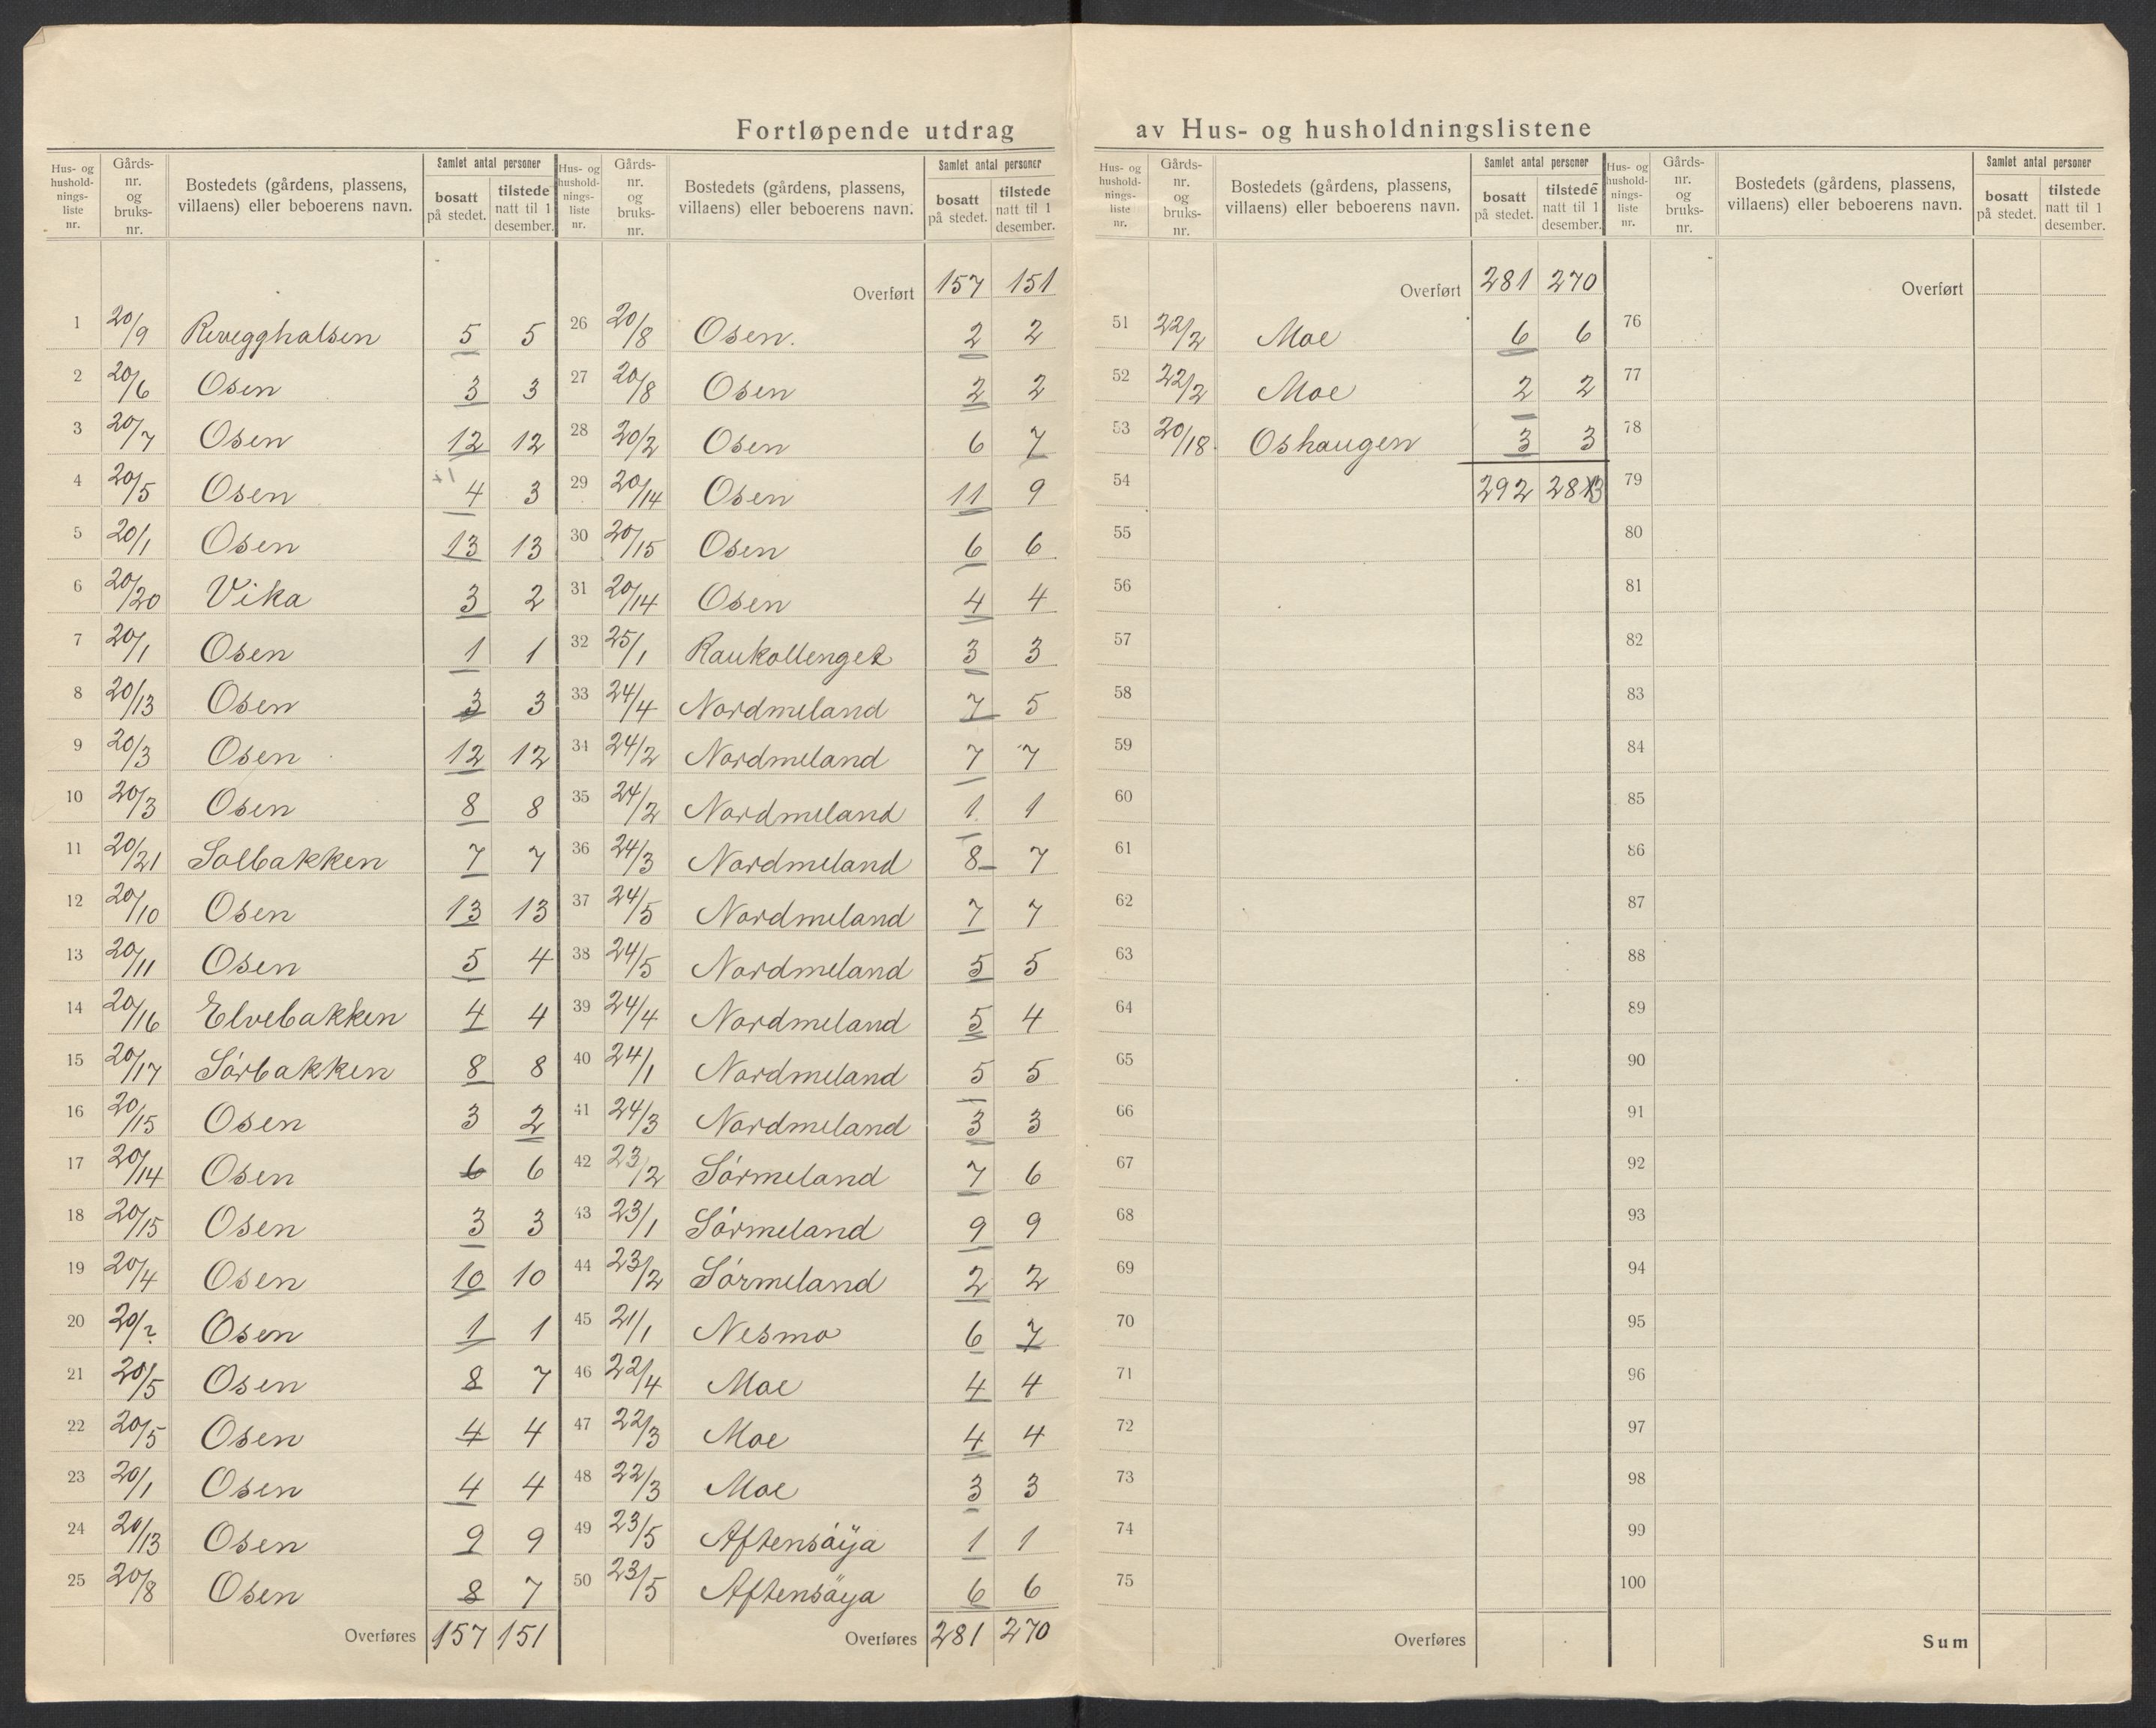 Fortløpende utdrag av Hus- og husholdningslistene
Hus- og hushold-nings-liste nr. | Gårds-nr. og bruks-nr. | Bostedets (gårdens, plassens, villaens) eller beboerens navn. | Samlet antal personer | bosatt på stedet. | tilstede natt til 1 desember.
1 20/9 Revegghalsen 5 5
2 20/6 Osen 3 3
3 20/7 Osen 12 12
4 20/5 Osen 4 3
5 20/1 Osen 13 13
6 20/20 Vika 3 2
7 20/1 Osen 1 1
8 20/13 Osen 3 3
9 20/3 Osen 12 12
10 20/3 Osen 8 8
11 20/21 Solbakken 7 7
12 20/10 Osen 13 13
13 20/11 Osen 5 4
14 20/16 Elvebakken 4 4
15 20/17 Sörbakken 8 8
16 20/15 Osen 3 2
17 20/14 Osen 6 6
18 20/15 Osen 3 3
19 20/4 Osen 10 10
20 20/? Osen 1 1
21 20/5 Osen 8 7
22 20/5 Osen 4 4
23 20/1 Osen 4 4
24 20/13 Osen 9 9
25 20/8 Osen 8 7
Overføres 157 151
Hus- og hushold-nings-liste nr. | Gårds-nr. og bruks-nr. | Bostedets (gårdens, plassens, villaens) eller beboerens navn. | Samlet antal personer | bosatt på stedet. | tilstede natt til 1 desember.
Overført 157 151
26 20/8 Osen. 2 2
27 20/8 Osen 2 2
28 20/2 Osen 6 7
29 20/14 Osen 11 9
30 20/15 Osen 6 6
31 20/14 Osen 4 4
32 25/1 Raukollenget 3 3
33 24/4 Nordmeland 7 5
34 24/2 Nordmeland 7 7
35 24/2 Nordmeland 1 1
36 24/3 Nordmeland 8 7
37 24/5 Nordmeland 7 7
38 24/5 Nordmeland 5 5
39 24/4 Nordmeland 5 4
40 24/1 Nordmeland 5 5
41 24/3 Nordmeland 3 3
42 23/2 Sörmeland 7 6
43 23/1 Sörmeland 9 9
44 23/2 Sörmeland 2 2
45 21/1 Nesmo 6 7
46 22/4 Moe 4 4
47 22/3 Moe 4 4
48 22/3 Moe 3 3
49 23/5 Aftensöya 1 1
50 23/5 Aftensöya 6 6
Overføres 281 270
Hus- og hushold-nings-liste nr. | Gårds-nr. og bruks-nr. | Bostedets (gårdens, plassens, villaens) eller beboerens navn. | Samlet antal personer | bosatt på stedet. | tilstede natt til 1 desember.
Overført 281 270
51 22/2 Moe 6 6
52 22/2 Moe 2 2
53 20/18 Oshaugen 3 3
54 292
55
56
57
58
59
60
61
62
63
64
65
66
67
68
69
70
71
72
73
74
75
Overføres
Hus- og hushold-nings-liste nr. | Gårds-nr. og bruks-nr. | Bostedets (gårdens, plassens, villaens) eller beboerens navn. | Samlet antal personer | bosatt på stedet. | tilstede natt til 1 desember.
Overført
76
77
78
79
80
81
82
83
84
85
86
87
88
89
90
91
92
93
94
95
96
97
98
99
100
Sum